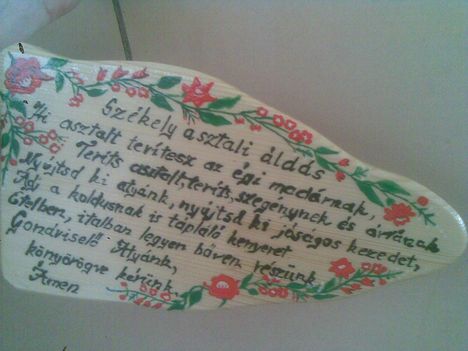 Székely asztali áldás
"Ki asztalt terítesz az égi madárnak,
Teríts asztalt, teríts, szegénynek és árvának
Nyújtsd ki atyánk, nyújtsd ki jóságos kezedet,
Adj a koldusnak is tápláló kenyeret
Ételben, italban legyen bőven részünk,
Gondviselő Atyánk,
könyörögve kérünk.
Ámen